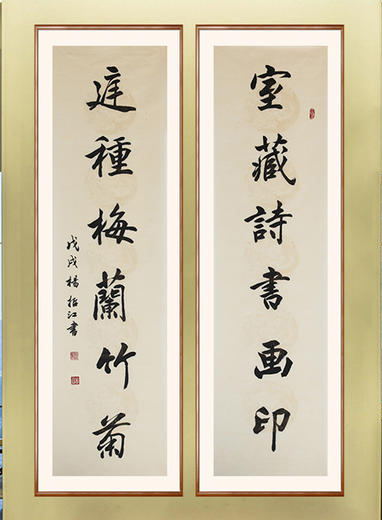 室藏詩書画印
庭種梅蘭竹菊
戊戌楊哲江書